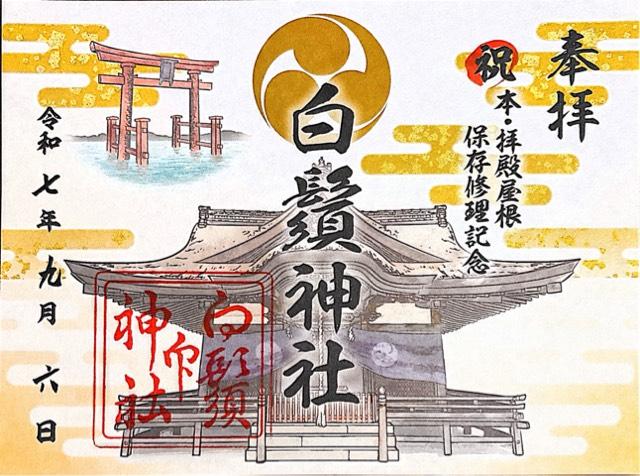 奉拝
祝
本・拝殿屋根
保存修理記念
白鬚神社
白鬚
神社
印
令和七年九月六日